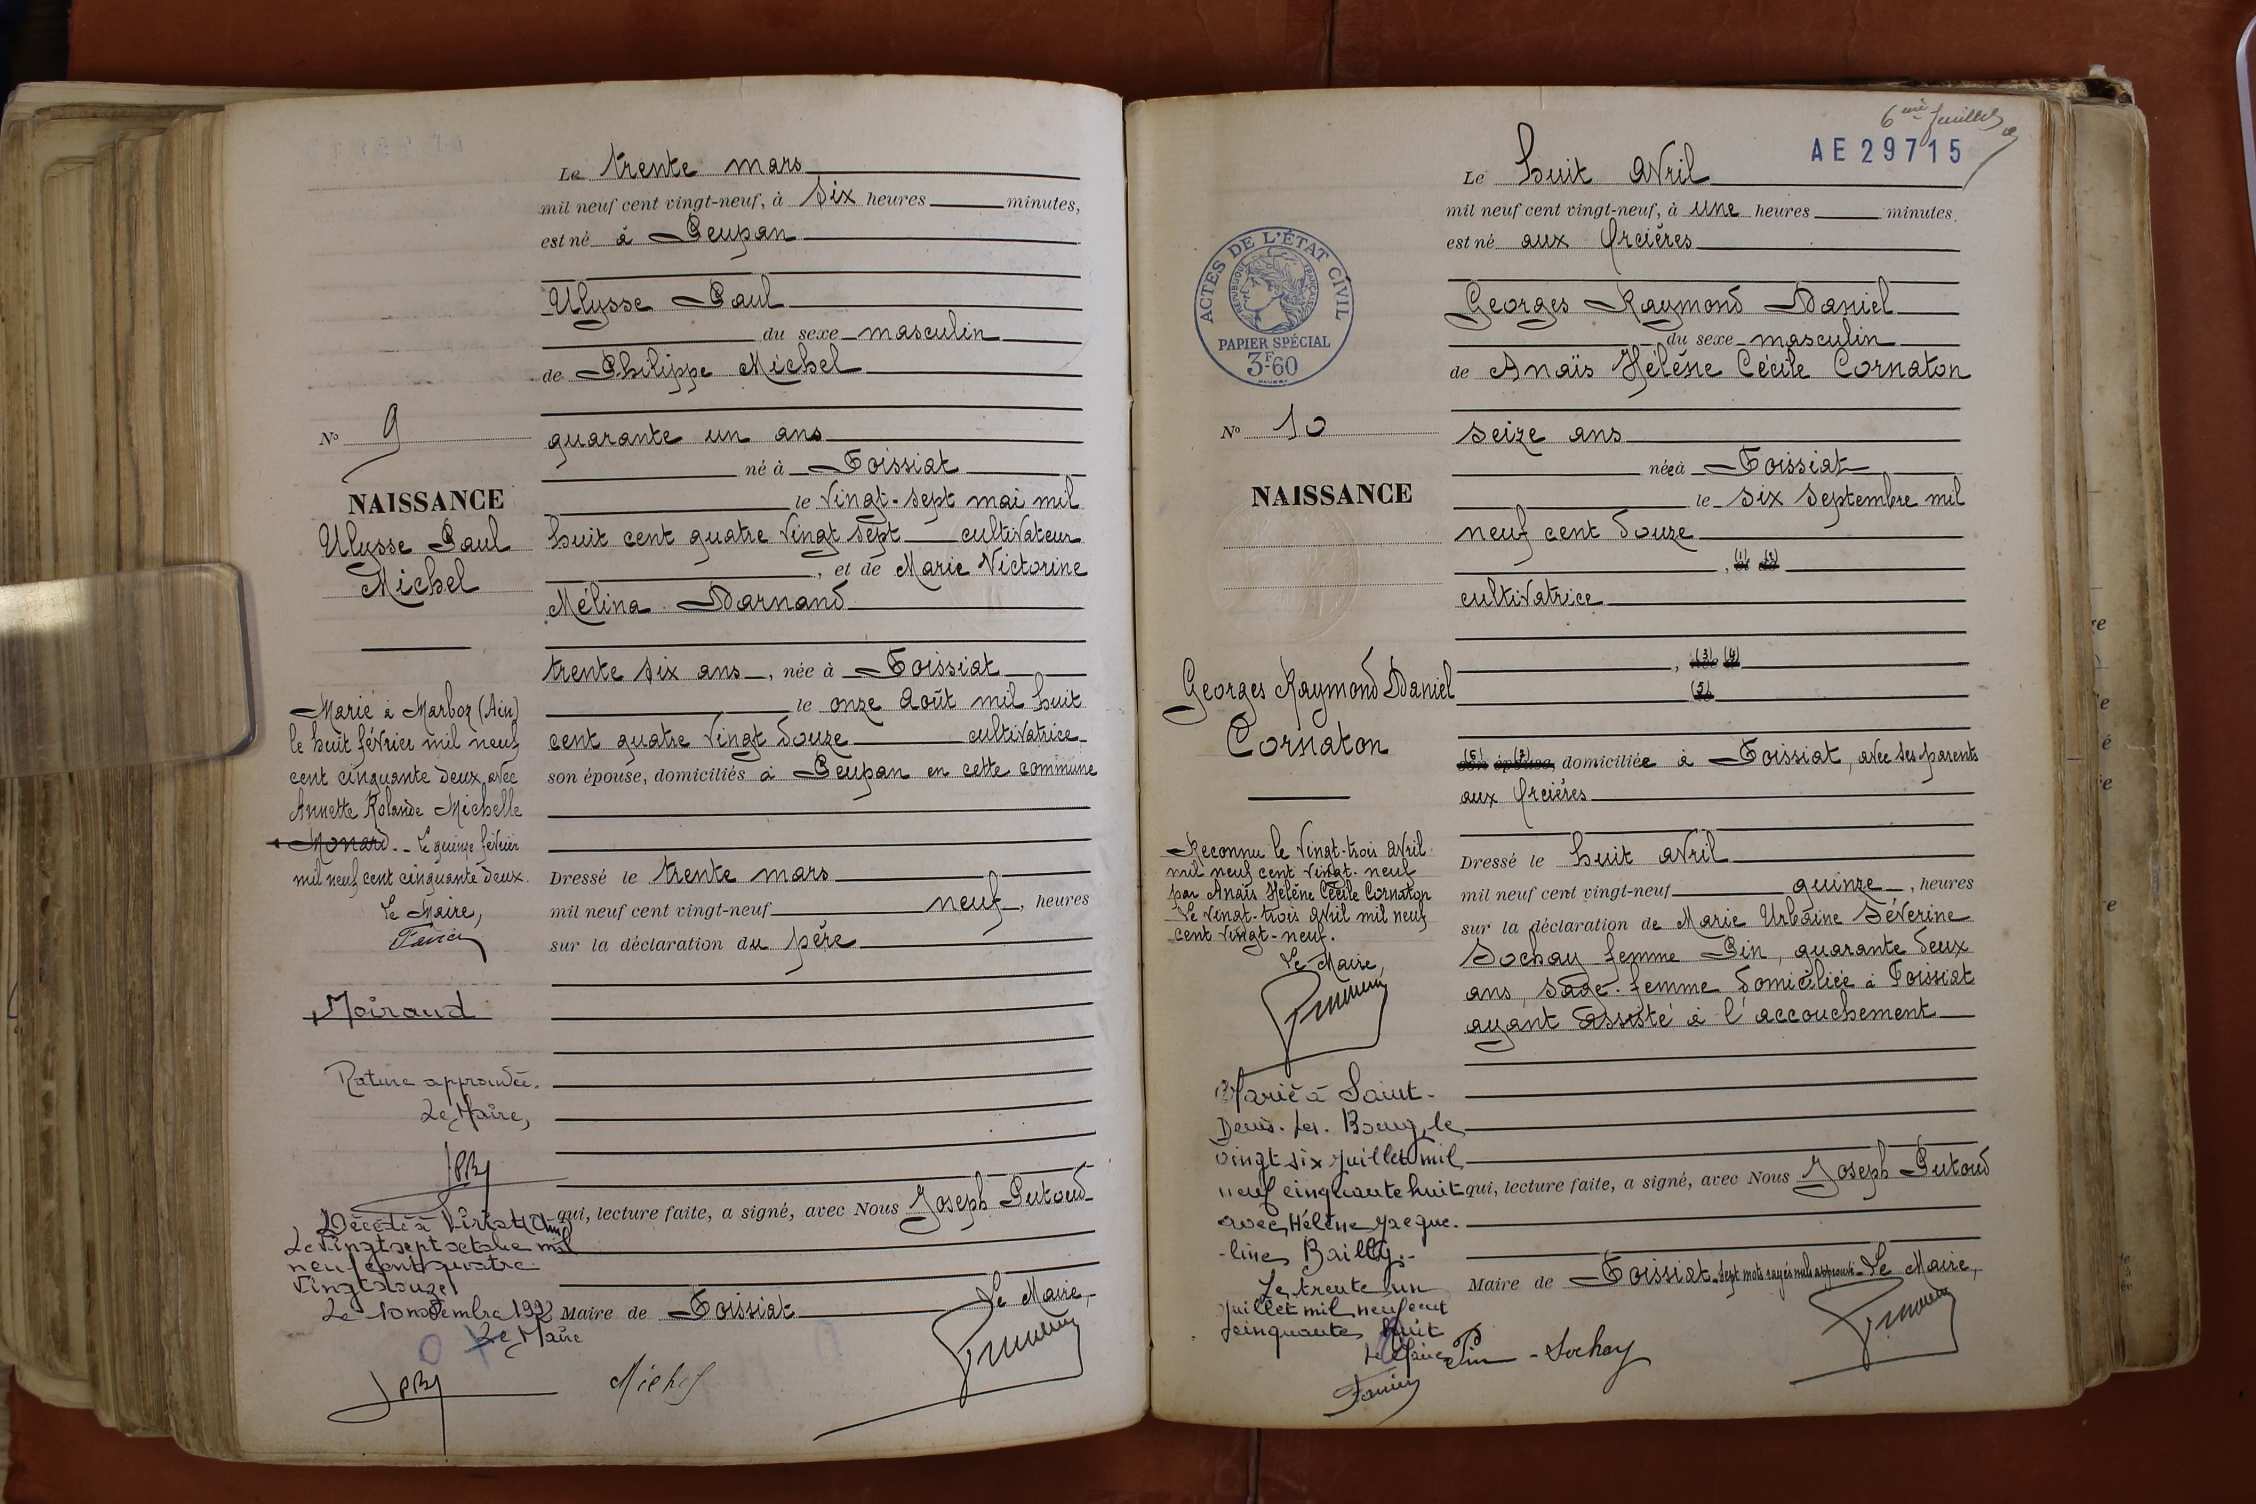 Le trente mars
mil neuf cent vingt-neuf, à six heures minutes,
est né à Peupan
Ulysse Paul
du sexe masculin
de Philippe Michel
quarante un ans
né à Foissiat
le vingt-sept mai mil
huit cent quatre vingt sept cultivateur
, et de Marie Victorine
Mélina Darnand
trente six ans, née à Foissiat
le onze août mil huit
cent quatre vingt douze cultivatrice
son épouse, domiciliés à Peupan en cette commune
Dressé le trente mars
mil neuf cent vingt-neuf neuf, heures
sur la déclaration du père
qui, lecture faite, a signé, avec Nous Joseph Putoud
Maire de Foissiat Le Maire,
Michel
No 9
NAISSANCE
Ulysse Paul
Michel
Marié à Marboz (Ain)
le huit février mil neuf
cent cinquante deux avec
Annette Rolande Michelle
Monard. - Le quinze février
mil neuf cent cinquante deux.
Le Maire,
Moiraud
Rature approuvée.
Le Maire,
Décédé à Viriat (Ain)
Le vingt sept octobre mil
neuf cent quatre
vingt douze
Le 10 novembre 1992
Le Maire
6ème feuillet
AE 29715
Le huit avril
mil neuf cent vingt-neuf, à une heures minutes,
est né aux Orcières
Georges Raymond Daniel
du sexe masculin
de Anaïs Hélène Cécile Cornaton
seize ans
née à Foissiat
le six septembre mil
neuf cent douze
, (1) (2)
cultivatrice
, (3) (4)
(5)
domiciliée à Foissiat, avec ses parents
aux Orcières
Dressé le huit avril
mil neuf cent vingt-neuf quinze, heures
sur la déclaration de Marie Urbaine Séverine
Sochay femme Pin, quarante deux
ans, sage-femme domiciliée à Foissiat
ayant assisté à l'accouchement
qui, lecture faite, a signé, avec Nous Joseph Putoud
Maire de Foissiat. Sept mots rayés nuls approuvé - Le Maire,
Pin - Sochay
ACTES DE L'ÉTAT CIVIL
RÉPUBLIQUE FRANÇAISE
PAPIER SPÉCIAL
3F.60
No 10
NAISSANCE
Georges Raymond Daniel
Cornaton
Reconnu le vingt-trois avril
mil neuf cent vingt-neuf
par Anaïs Hélène Cécile Cornaton
Le vingt-trois avril mil neuf
cent vingt-neuf.
Le Maire,
Marié à Saint-
Denis-les-Bourg, le
vingt six juillet mil
neuf cinquante huit
avec Hélène Jacque-
line Bailly.-
Le trente un
juillet mil neuf cent
cinquante huit
Le Maire